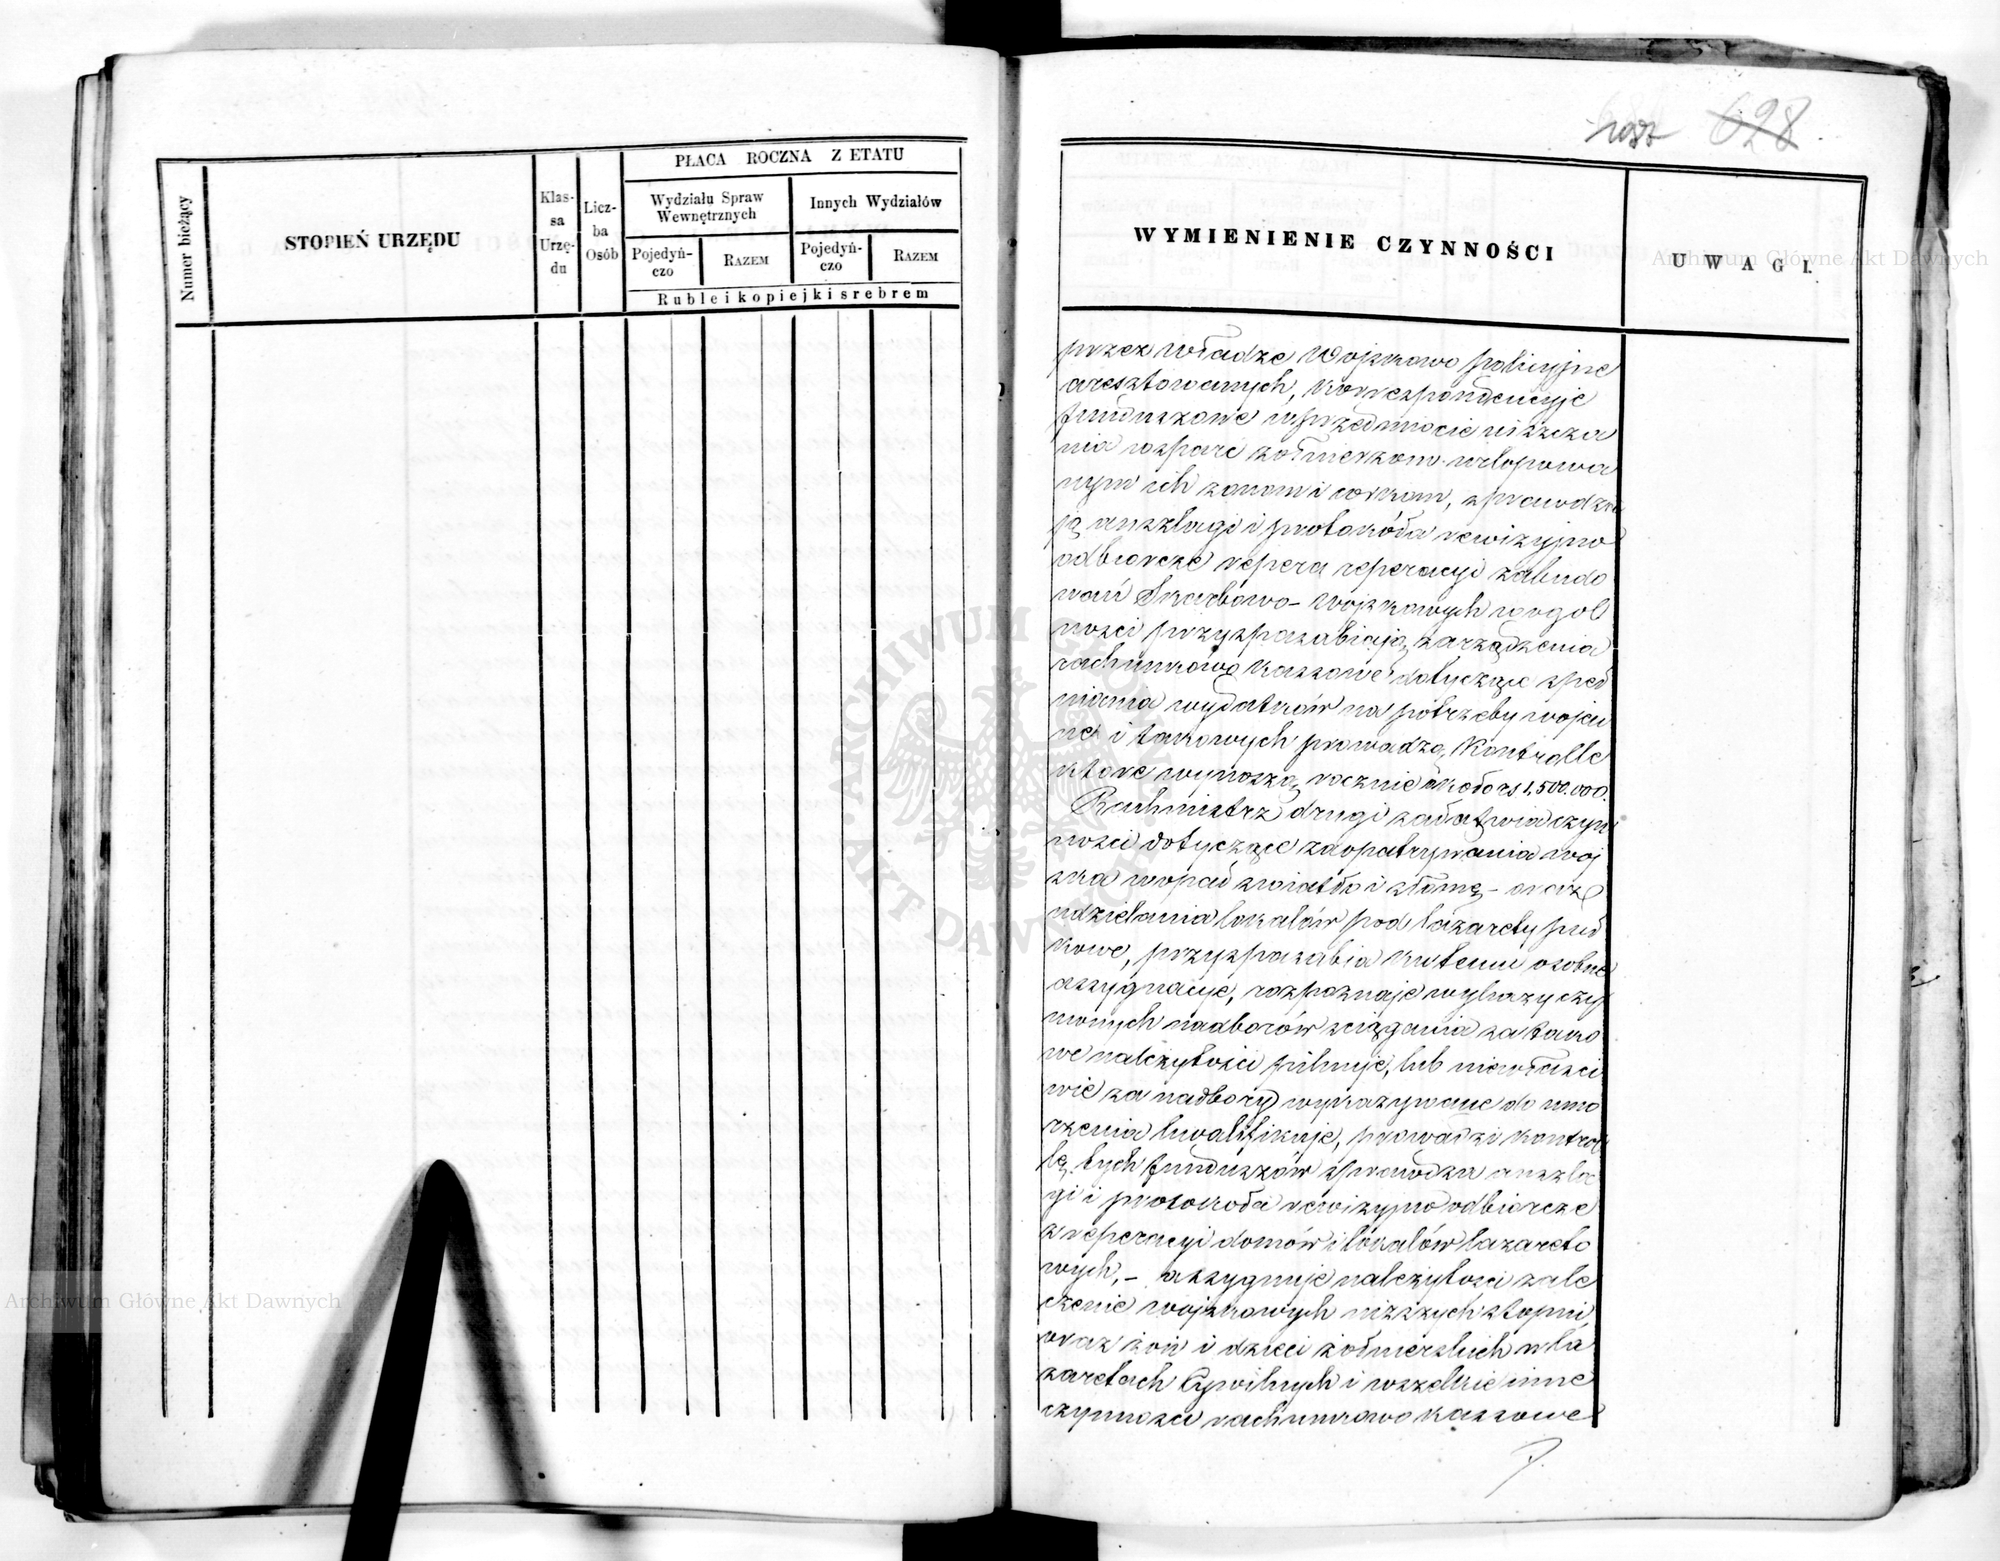 PŁACA ROCZNA Z ETATU
Numer bieżący
STOPIEŃ URZĘDU
Klas-
sa
Urzę-
du
Licz-
ba
Osób
Wydziału Spraw
Wewnętrznych
Innych Wydziałów
Pojedyń-
czo
RAZEM
Pojedyń-
czo
RAZEM
Ruble i kopiejki srebrem
628
WYMIENIENIE CZYNNOŚCI
UWAGI.
przez władze Wojskowo policyjne
aresztowanych, korrespondencyje
funduszowe w przedmiocie uiszcza
nia wsparć żołnierzom urlopowa
nym ich żonom i córkom, sprawdza
ją anszlagi i protokóła rewizyjno
odbiorcze reperacyi zabudo
wań Skarbowo-Wojskowych w ogol
ności przysposabiają, zarządzenia
rachunkowo kassowe dotyczące speł
niania wydatków na potrzeby wojen
ne i takowych prowadzą Kontrolle
które wynoszą rocznie około rs 1,500.000.
Rachmistrz drugi załatwia czyn
ności dotyczące zaopatrywania woj
ska w opał światło i słomę - oraz
udzielania lokalów pod lazarety puł
kowe, przysposabia ku temu osobne
assygnacye, rozpoznaje wykazy czy
nionych nadborów ściągania za tako
we należytości pilnuje, lub niewłaści
wie za nadbory wykazywane do umo
rzenia kwalifikuje, prowadzi kontrol
lę tych funduszów sprawdza anszla
gi i protokóła rewizyjno odbiorcze
z reperacyi domów i lokalów lazareto
wych, - assygnuje należytości za le
czenie wojskowych niższych stopni,
oraz żon i dzieci żołnierskich w la
zaretach Cywilnych i wszelkie inne
czynności rachunkowo kassowe
ARCHIWUM GŁÓWNE AKT DAWNYCH
Archiwum Główne Akt Dawnych
Archiwum Główne Akt Dawnych